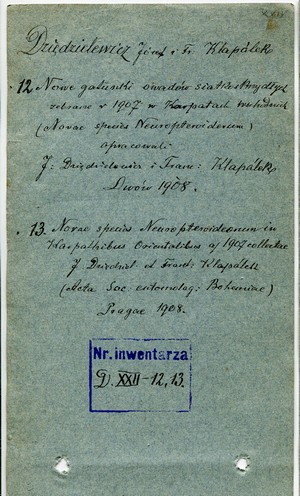 XXII
Dziędzielewicz Józef i Fr. Klapálek
12 Nowe gatunki owadów siatkoskrzydłych
zebrane w 1907 w Karpatach Wschodnich
(Novae species Neuropteroideorum)
opracowali
J: Dziędzielewicz i Franc: Klapálek
Lwów 1908.
13. Novae species Neuropteroideorum in
Karpathibus Orientalibus a/ 1907 collectae
J. Dziedziel et Frant: Klapálek
(Acta Soc. entomolog: Bohemiae)
Pragae 1908.
Nr. inwentarza
D. XXII-12, 13.